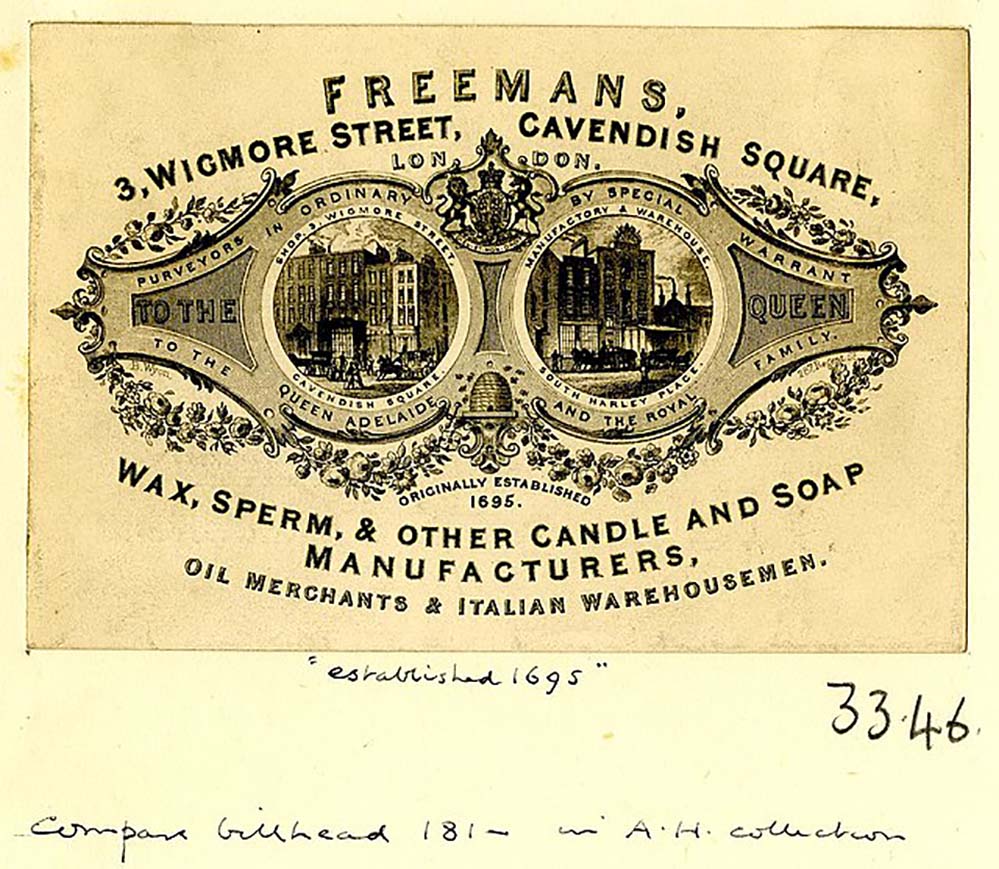 FREEMANS,
3, WIGMORE STREET, CAVENDISH SQUARE,
LONDON.
PURVEYORS IN ORDINARY BY SPECIAL WARRANT
SHOP, 3, WIGMORE STREET,
CAVENDISH SQUARE.
MANUFACTORY & WAREHOUSE,
SOUTH HARLEY PLACE.
TO THE QUEEN
TO THE QUEEN ADELAIDE AND THE ROYAL FAMILY.
ORIGINALLY ESTABLISHED
1695.
WAX, SPERM, & OTHER CANDLE AND SOAP
MANUFACTURERS,
OIL MERCHANTS & ITALIAN WAREHOUSEMEN.
"established 1695"
33.46.
Compare billhead 181- in A.H. collection